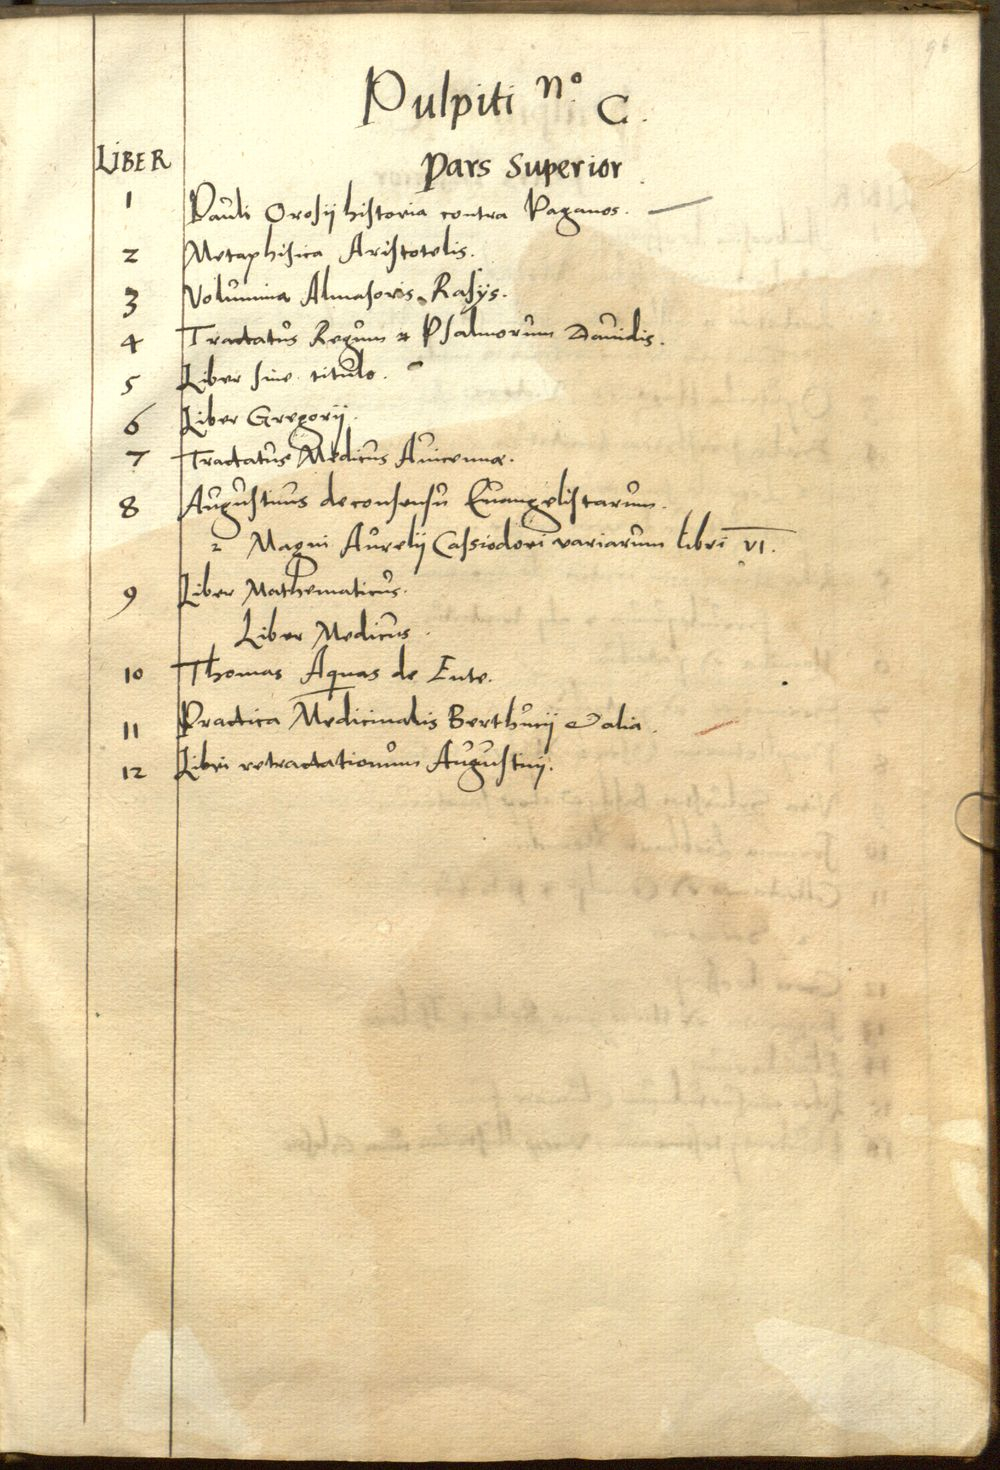 96
Pulpiti nº. C.
LIBER
Pars Superior.
1 Pauli Orosij historia contra Paganos.
2 Metaphisica Aristotelis.
3 Volumina Almasoris Rasys.
4 Tractatus Regum & Psalmorum Dauidis.
5 Liber sine titulo.
6 Liber Gregorij.
7 Tractatus Medicus Auicennæ.
8 Augustinus de consensu Euangelistarum.
2 Magni Aurelij Cassiodori variarum libri VI.
9 Liber Mathematicus.
Liber Medicus.
10 Thomas Aquas de Ente.
11 Practica Medicinalis Berthucij & alia.
12 Libri retractationum Augustinj.